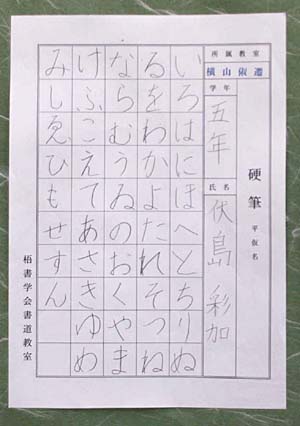 硬筆 平仮名
所属教室
横山
学年
五年
氏名
伏島 彩加
いろはにほへとちりぬ
るをわかよたれそつね
ならむうゐのおくやま
けふこえてあさきゆめ
みしゑひもせすん
書学会書道教室